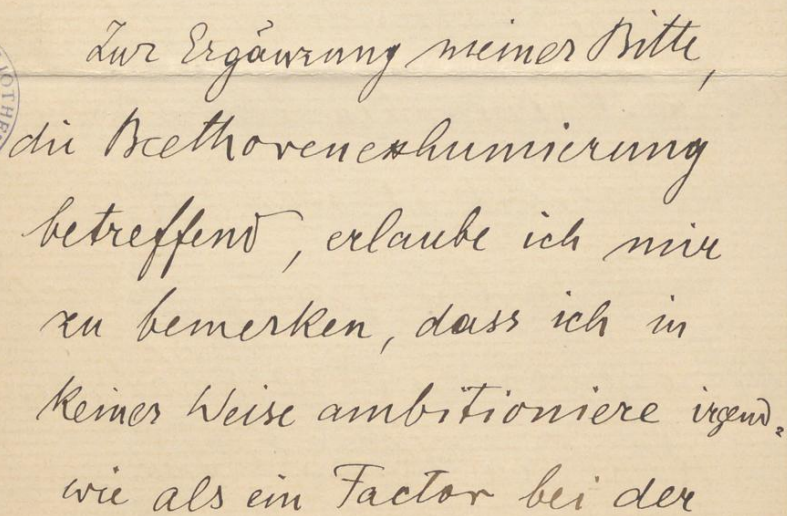 Zur Ergänzung meiner Bitte,
die Beethovenexhumierung
betreffend, erlaube ich mir
zu bemerken, dass ich in
keiner Weise ambitioniere irgend-
wie als ein Factor bei der